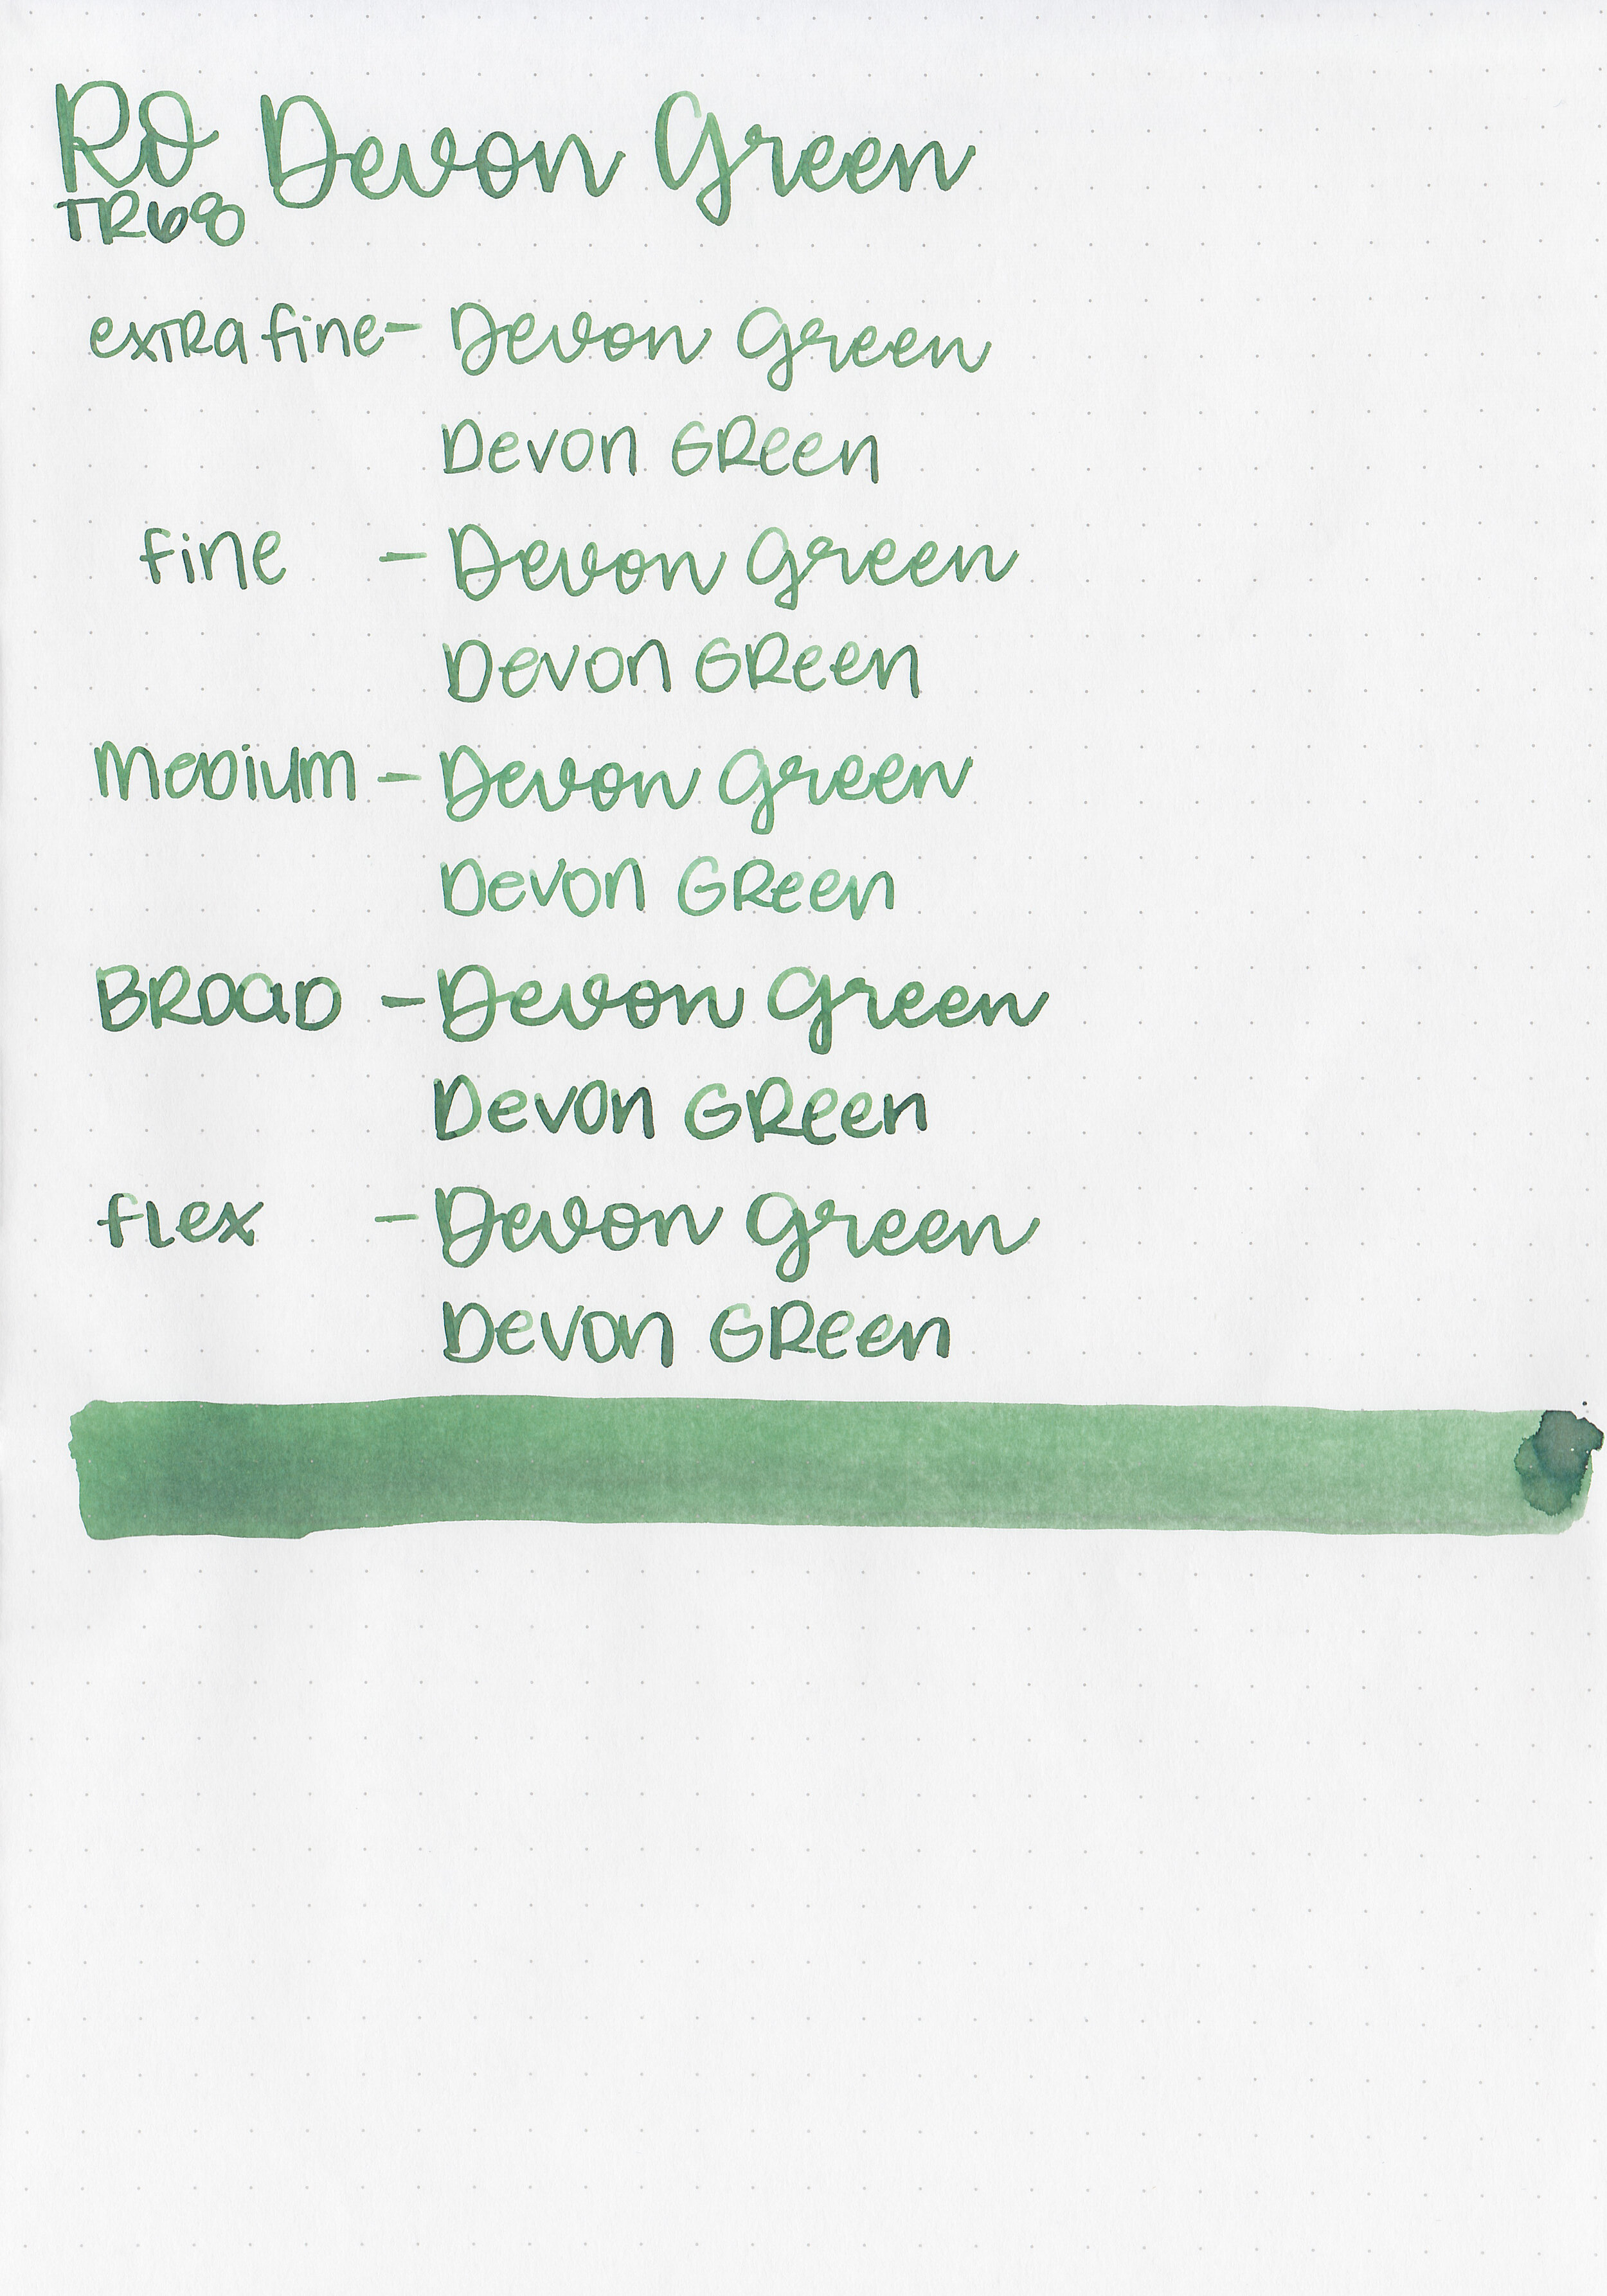 RO Devon Green
TR68
extra fine - Devon Green
Devon Green
fine - Devon Green
Devon Green
Medium - Devon Green
Devon Green
BROAD - Devon Green
Devon Green
flex - Devon Green
Devon Green